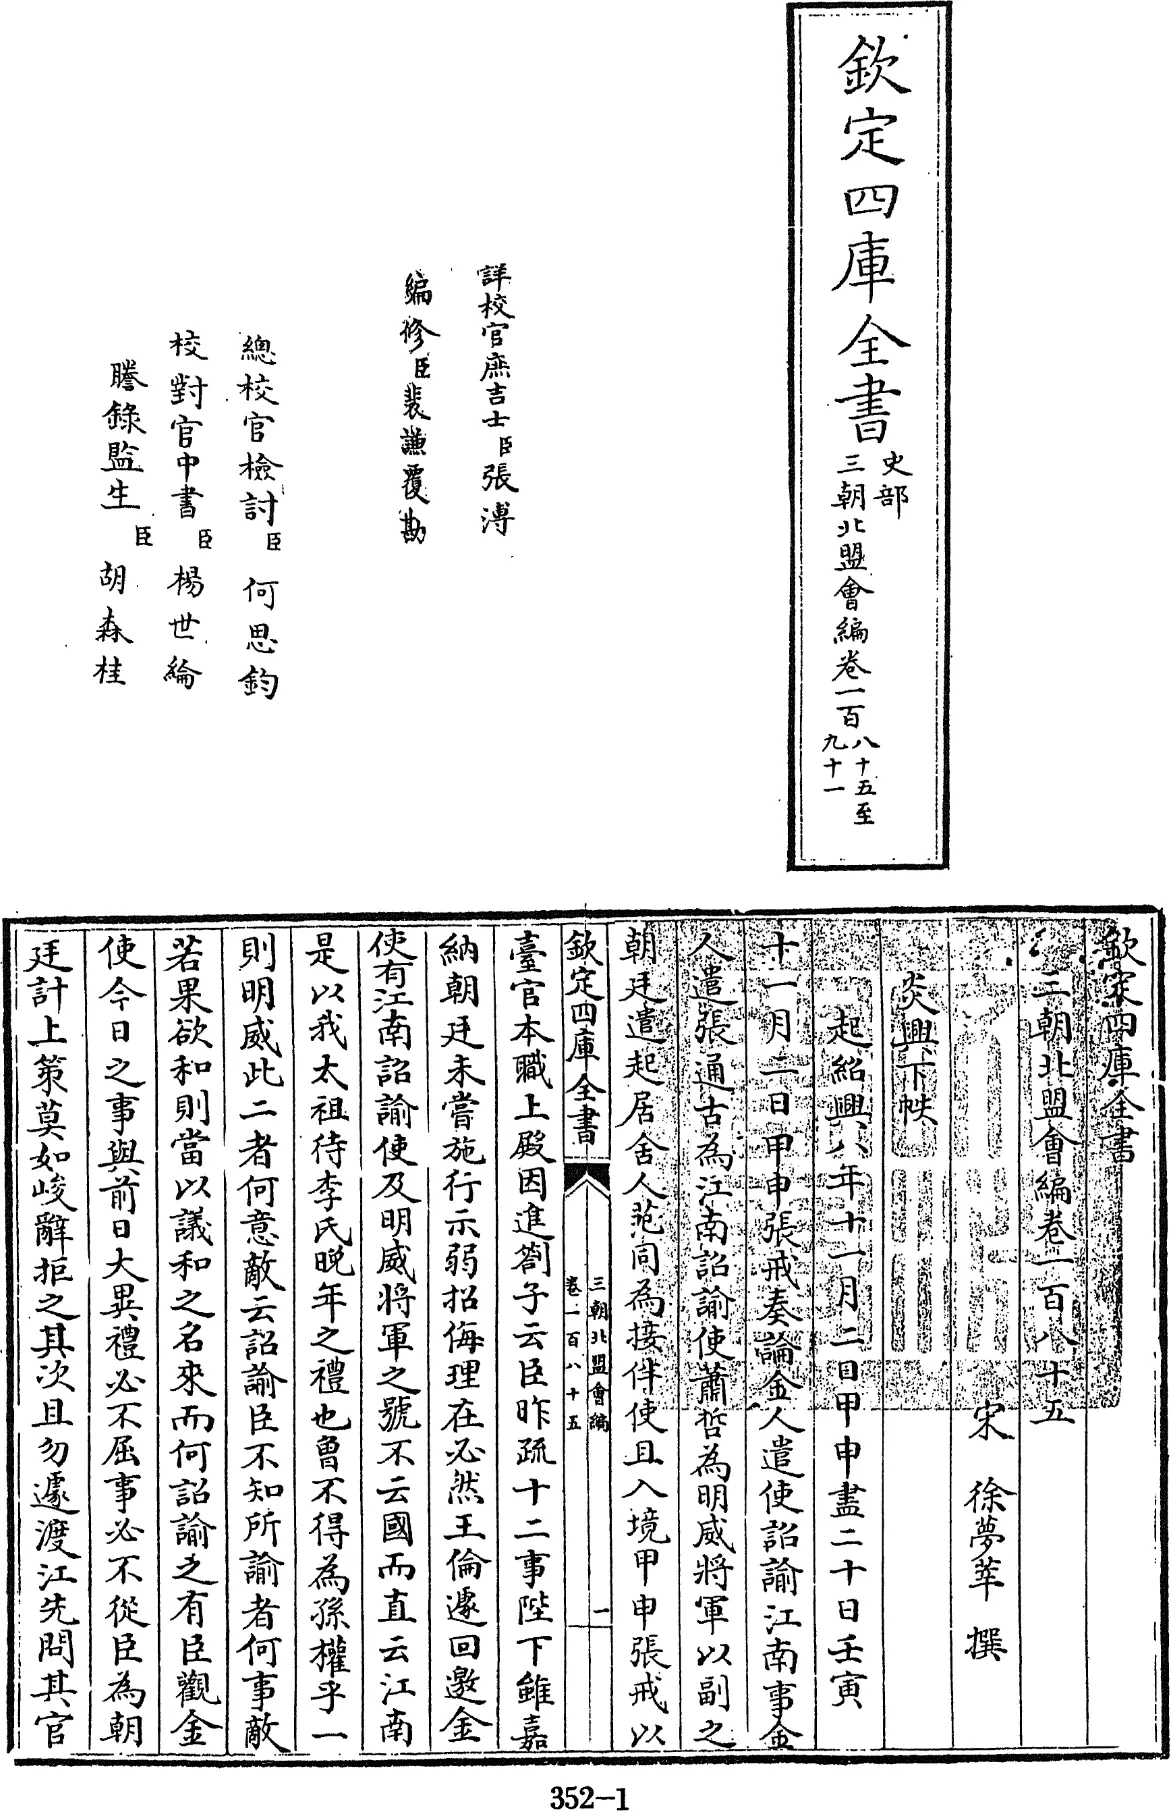 欽定四庫全書
史部
三朝北盟會編卷一百
八十五至
九十一
詳校官庶吉士臣張溥
編修臣裴謙覆勘
總校官檢討臣何思鈞
校對官中書臣楊世綸
謄錄監生臣胡森桂
欽定四庫全書
三朝北盟會編卷一百八十五
宋 徐夢莘 撰
炎興下帙
起紹興八年十一月二日甲申盡二十日壬寅
十一月二日甲申張戒奏論金人遣使詔諭江南事金
人遣張通古為江南詔諭使蕭哲為明威將軍以副之
朝廷遣起居舍人范同為接伴使且入境甲申張戒以
欽定四庫全書
三朝北盟會編
卷一百八十五
一
臺官本職上殿因進劄子云臣昨疏十二事陛下雖嘉
納朝廷未嘗施行示弱招侮理在必然王倫遽回邀金
使有江南詔諭使及明威將軍之號不云國而直云江南
是以我太祖待李氏晚年之禮也曾不得為孫權乎一
則明威此二者何意敵云詔諭臣不知所諭者何事敵
若果欲和則當以議和之名來而何詔諭之有臣觀金
使今日之事與前日大異禮必不屈事必不從臣為朝
廷計上策莫如峻辭拒之其次且勿遽渡江先問其官
352-1